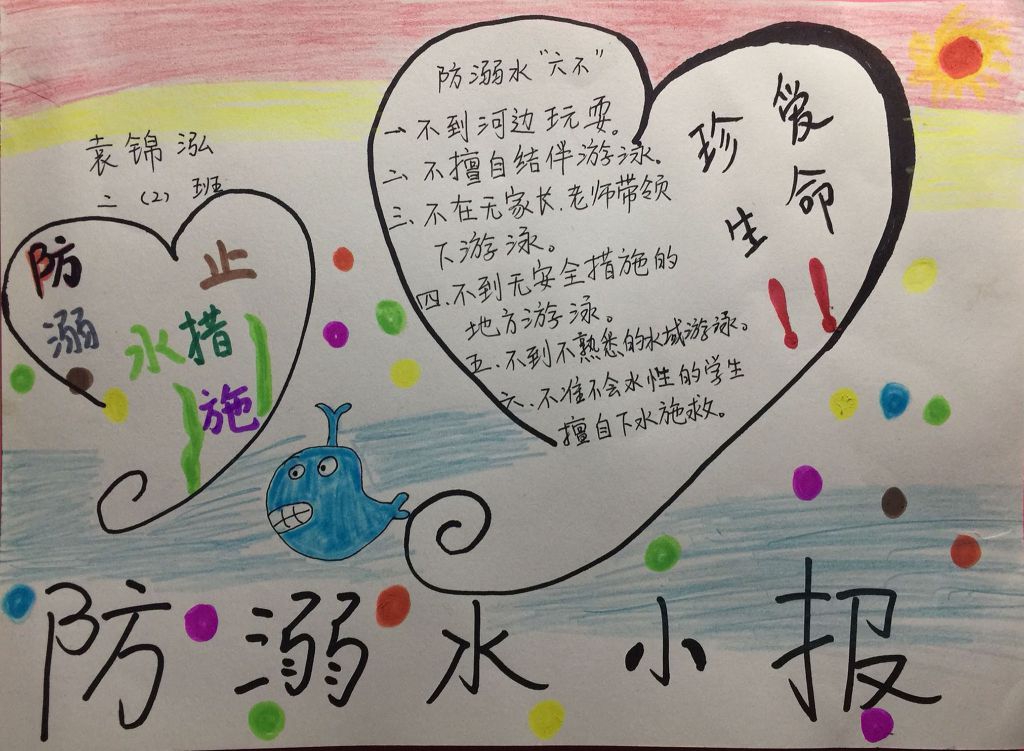 防溺水“六不”
一、不到河边玩耍。
二、不擅自结伴游泳。
三、不在无家长、老师带领
下游泳。
四、不到无安全措施的
地方游泳。
五、不到不熟悉的水域游泳。
六、不准不会水性的学生
擅自下水施救。
珍爱
生命
!!
袁锦泓
二（2）班
防止
溺水措
施
防溺水小报